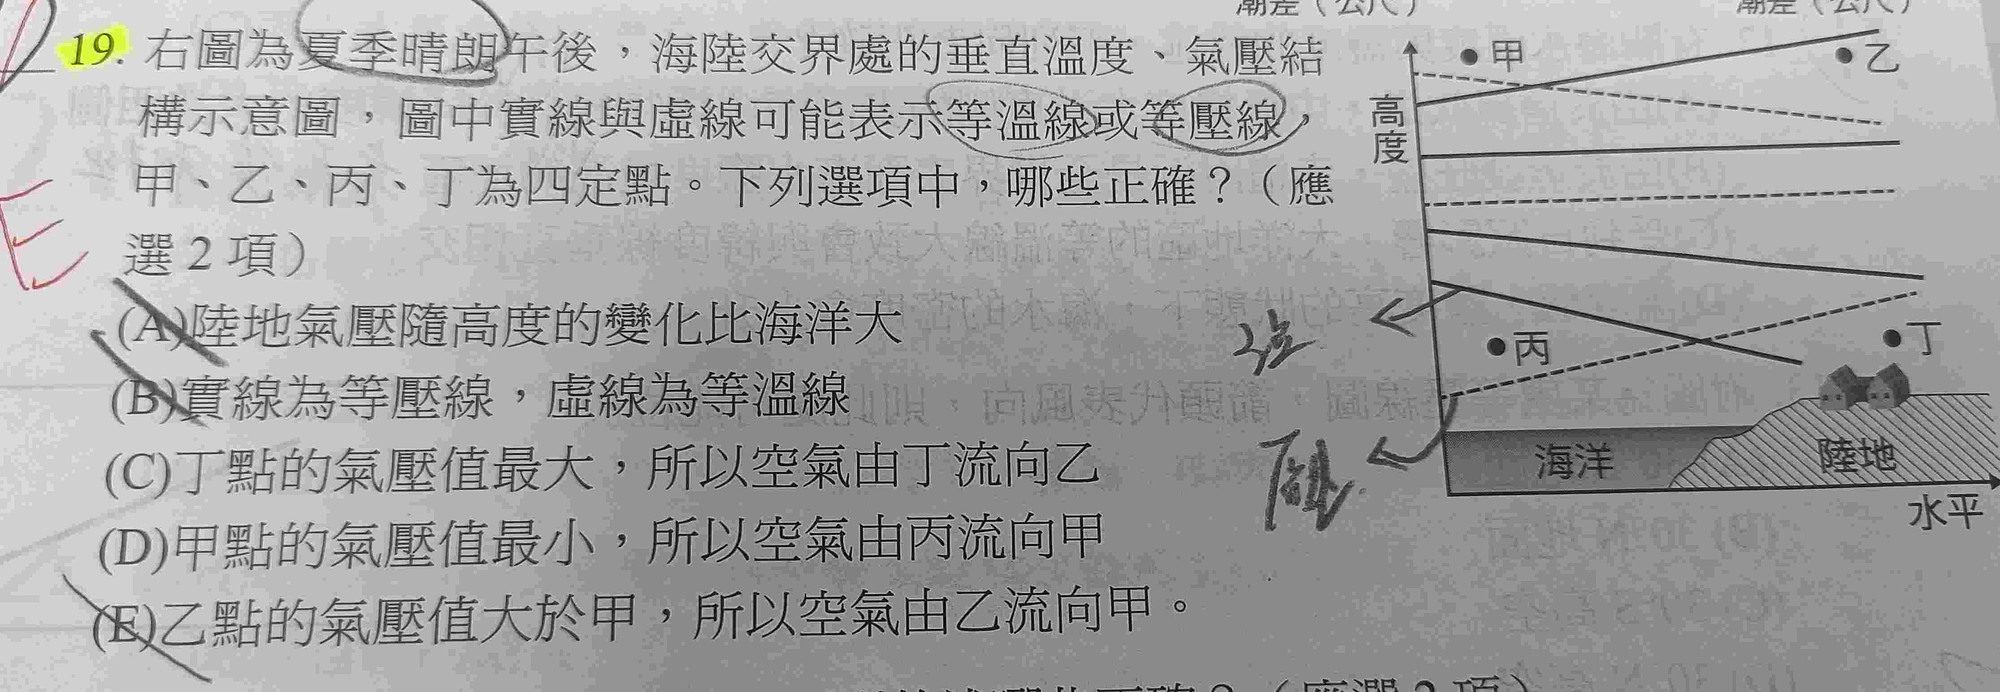 潮差（公尺） 潮差（公尺）
19. 右圖為夏季晴朗午後，海陸交界處的垂直溫度、氣壓結
構示意圖，圖中實線與虛線可能表示等溫線或等壓線，
甲、乙、丙、丁為四定點。下列選項中，哪些正確？（應
選2項）
(A)陸地氣壓隨高度的變化比海洋大
(B)實線為等壓線，虛線為等溫線
(C)丁點的氣壓值最大，所以空氣由丁流向乙
(D)甲點的氣壓值最小，所以空氣由丙流向甲
(E)乙點的氣壓值大於甲，所以空氣由乙流向甲。
甲
乙
高度
丙
丁
海洋
陸地
水平
E
（應選2項）